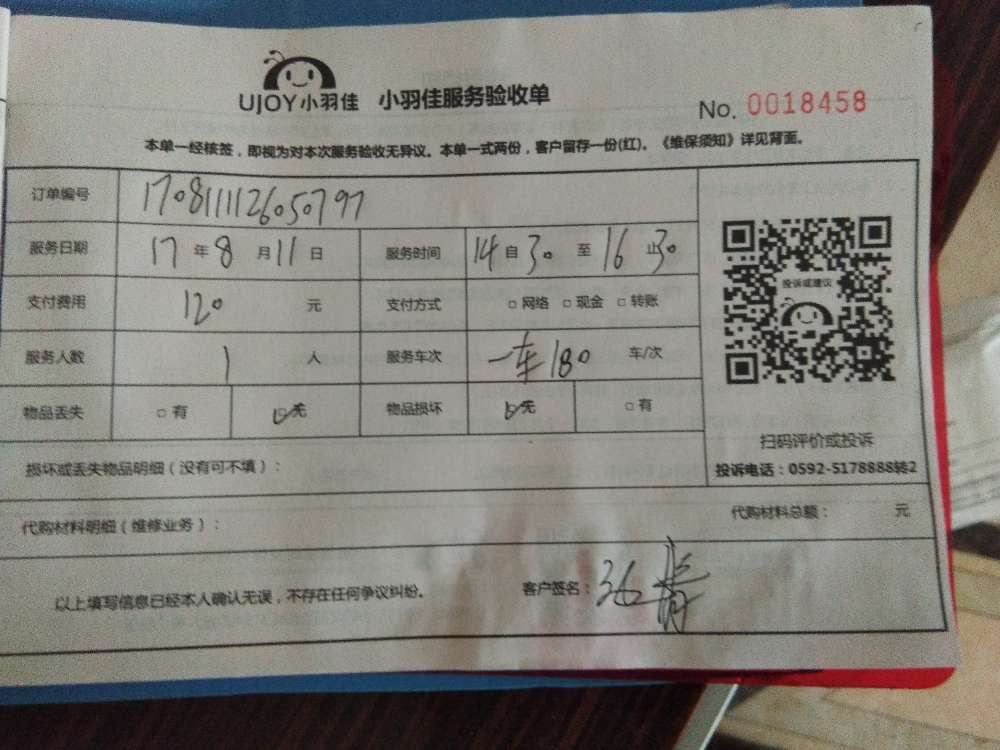 UJOY小羽佳 小羽佳服务验收单
No. 0018458
本单一经核签，即视为对本次服务验收无异议。本单一式两份，客户留存一份(红)。《维保须知》详见背面。
订单编号 1708111126050797
服务日期 17年8月11日 服务时间 14自30至16止30
支付费用 120元 支付方式 □网络 □现金 □转账
服务人数 1人 服务车次 一车180 车/次
物品丢失 □有 ☑无 物品损坏 ☑无 □有
投诉或建议
扫码评价或投诉
投诉电话：0592-5178888转2
损坏或丢失物品明细（没有可不填）：
代购材料明细（维修业务）： 代购材料总额： 元
以上填写信息已经本人确认无误，不存在任何争议纠纷。 客户签名：